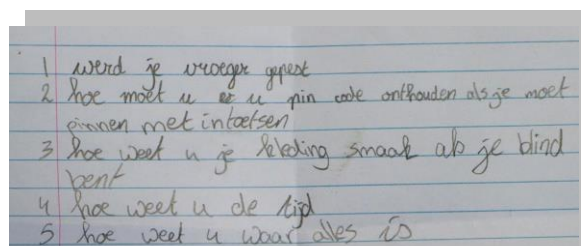 1 werd je vroeger gepest
2 hoe moet u u pin code onthouden als je moet
pinnen met intoetsen
3 hoe weet u je kleding smaak als je blind
bent
4 hoe weet u de tijd
5 hoe weet u waar alles is